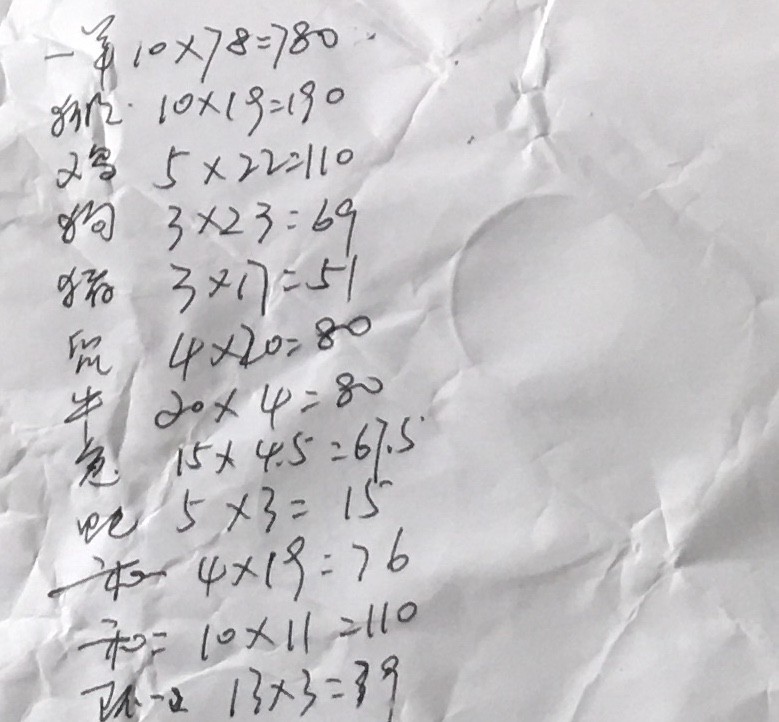 一羊 10×78=780
猴 10×19=190
鸡 5×22=110
狗 3×23=69
猪 3×17=51
鼠 4×20=80
牛 20×4=80
兔 15×4.5=67.5
蛇 5×3=15
4×19=76
10×11=110
13×3=39